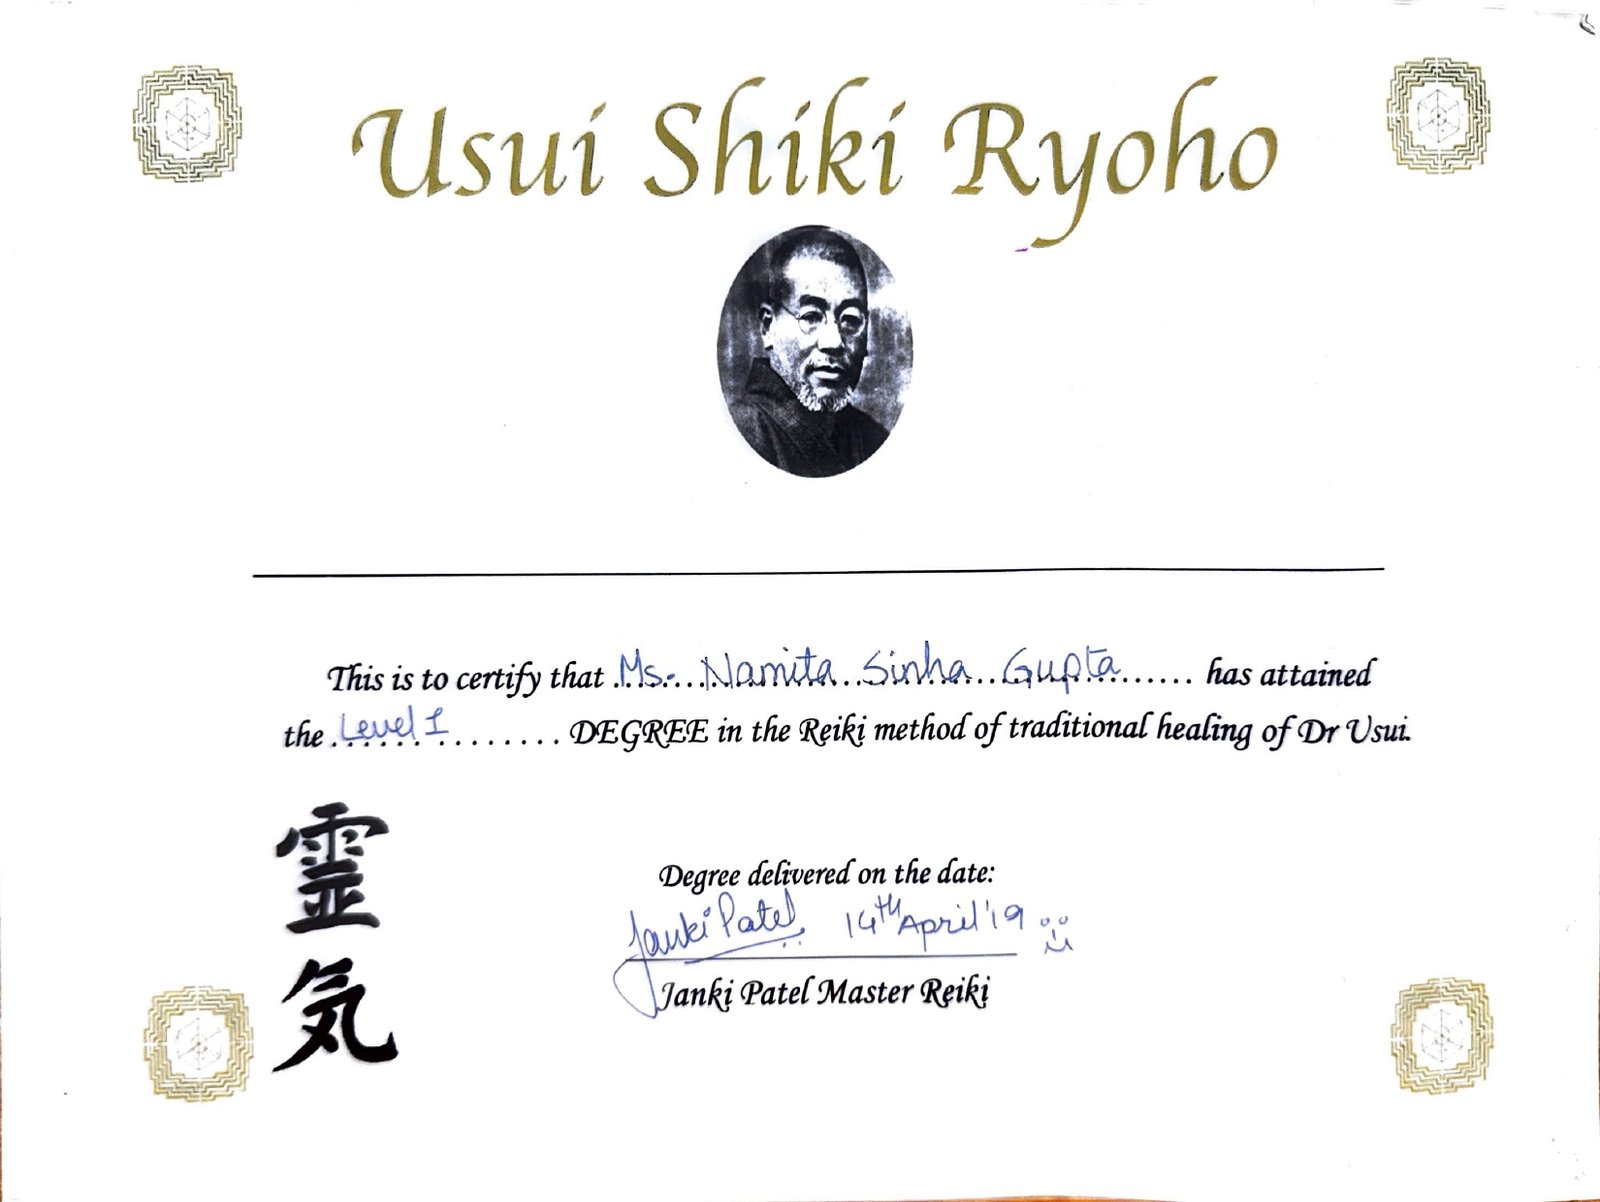 Usui Shiki Ryoho
This is to certify that Ms. Namita Sinha Gupta has attained
the Level 1 DEGREE in the Reiki method of traditional healing of Dr Usui.
靈
気
Degree delivered on the date:
Janki Patel 14th April '19
Janki Patel Master Reiki